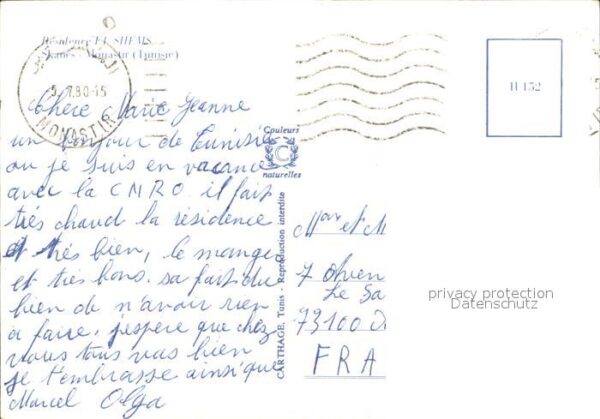 Résidence EL SHEMS
Skanès - Monastir (Tunisie)
7.80-15
MONASTIR
H 152
Chère Marie Jeanne
un bonjour de Tunisie
ou je suis en vacance
avec la CNRO il fait
très chaud la résidence
et très bien, le manger
et très bons. sa fait du
bien de n'avoir rien
a faire, j'espère que chez
vous tous vas bien
je t'embrasse ainsi que
Marcel Olga
Couleurs
C
naturelles
CARTHAGE, Tunis - Reproduction interdite
et M
7
Le Sa
73100
FRA
privacy protection
Datenschutz